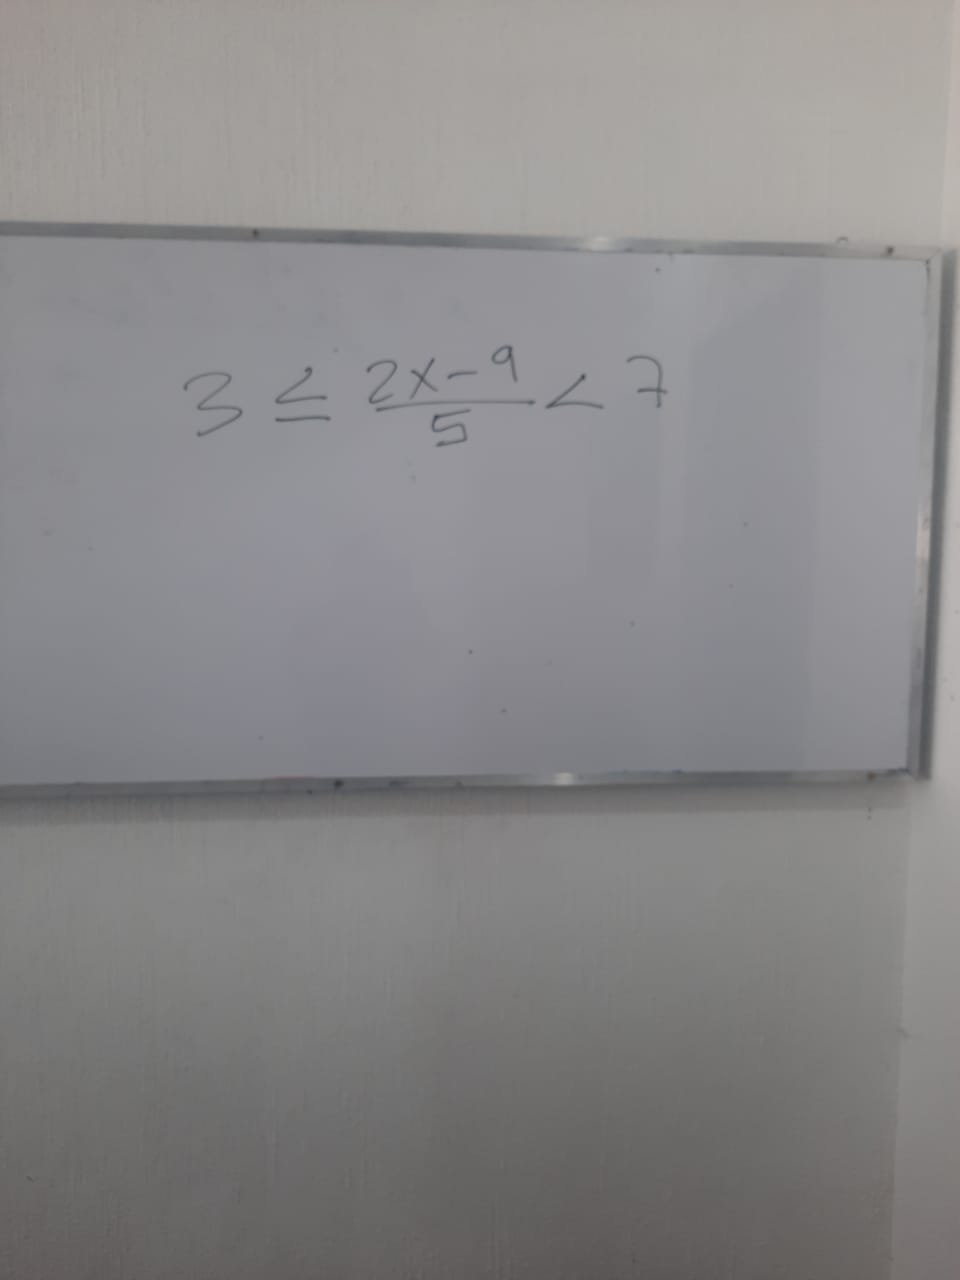 3 ≤ (2x-9)/5 < 7